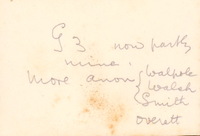 G3 now partly
mine.
More anon { Walpole
Walsh
Smith
Overett